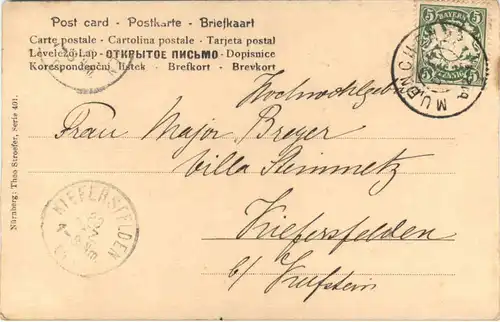 Post card - Postkarte - Briefkaart
Carte postale - Cartolina postale - Tarjeta postal
Levelező-Lap - ОТКРЫТОЕ ПИСЬМО - Dopisnice
Korespondenční lístek - Brefkort - Brevkort
BAYERN
5 5
5 PFENNIG 5
MUENCHEN
Hochwohlgeb
Frau Major Breyer
Villa Stemmetz
Kiefersfelden
b/ Kufstein
KIEFERSFELDEN
Nürnberg: Theo Stroefer, Serie 401.